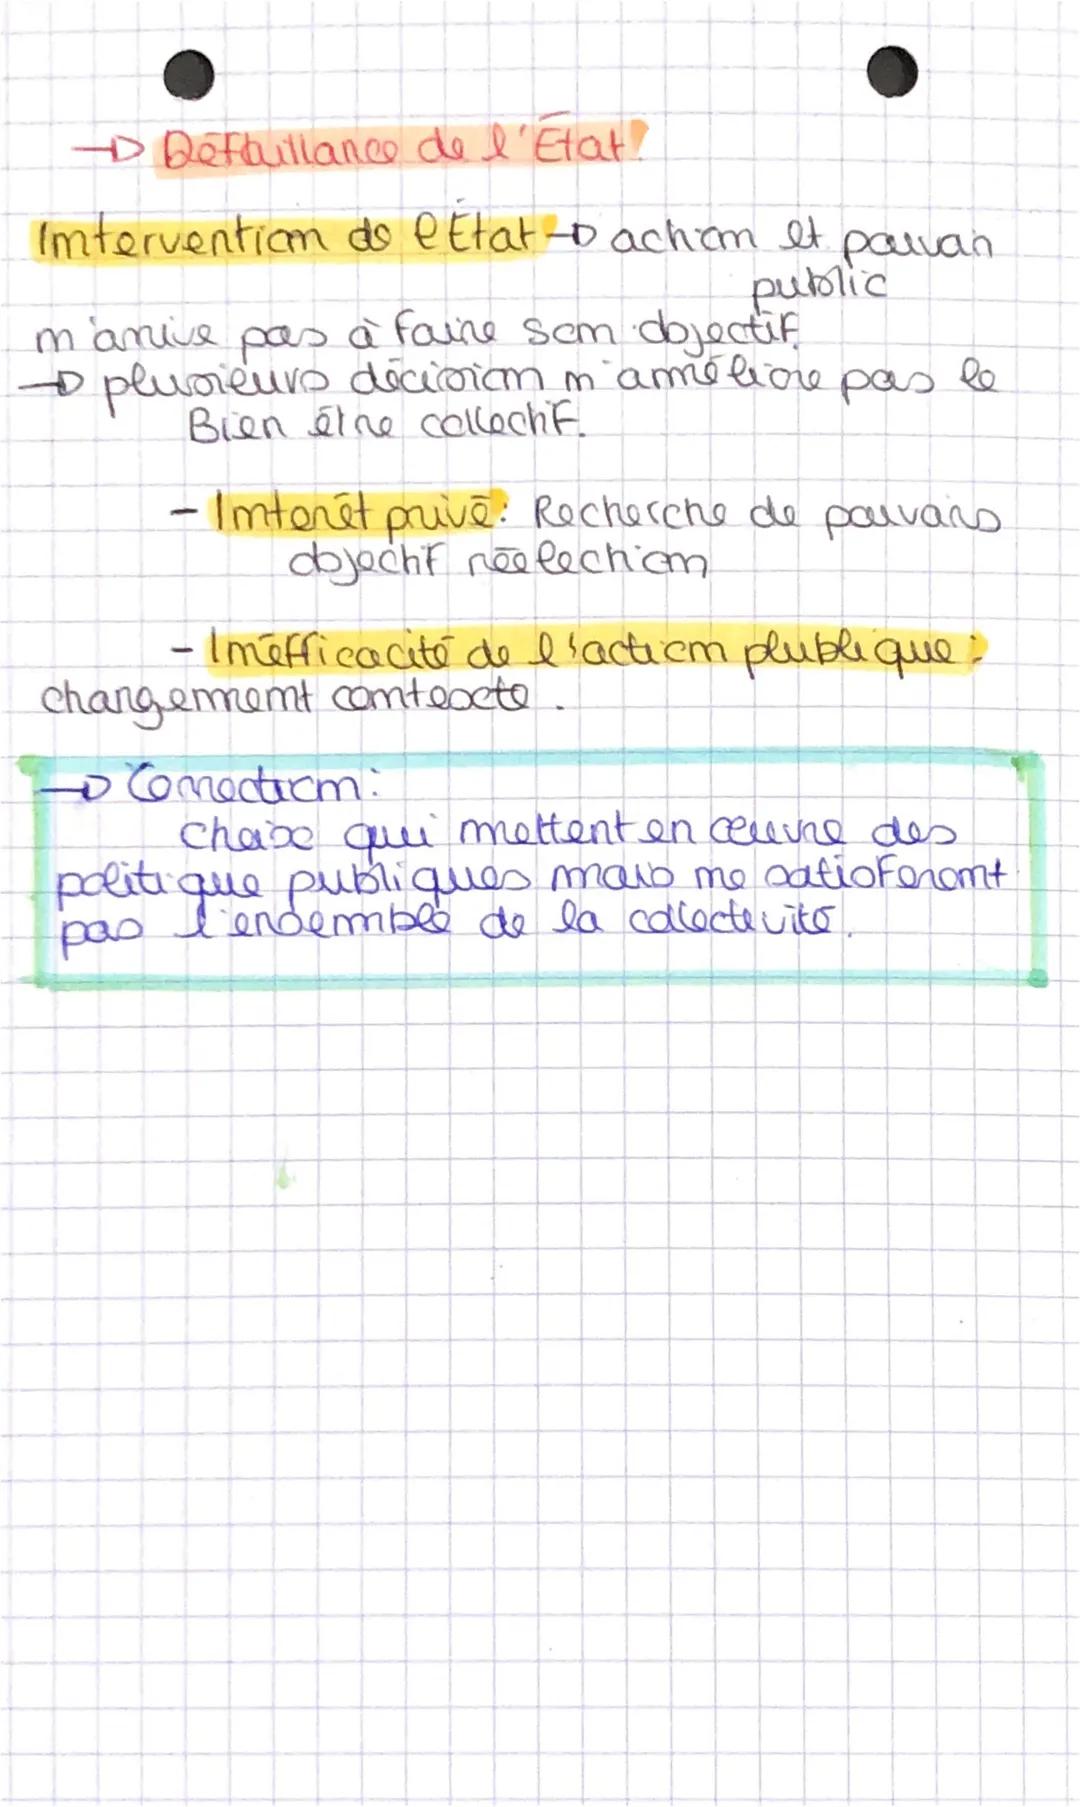 → Défaillance de l'État!
Intervention de l'État → action et pouvoir
public
n'arrive pas à faire son objectif.
→ plusieurs décision n'amméliore pas le
Bien être collectif.
- Interêt privé: Recherche de pouvoirs
objectif réélection
- Inéfficacité de l'action plublique:
changement contexte.
→ Correction:
Choix qui mettent en œuvre des
politique publiques mais ne satisferont
pas l'ensemmble de la collectivité.